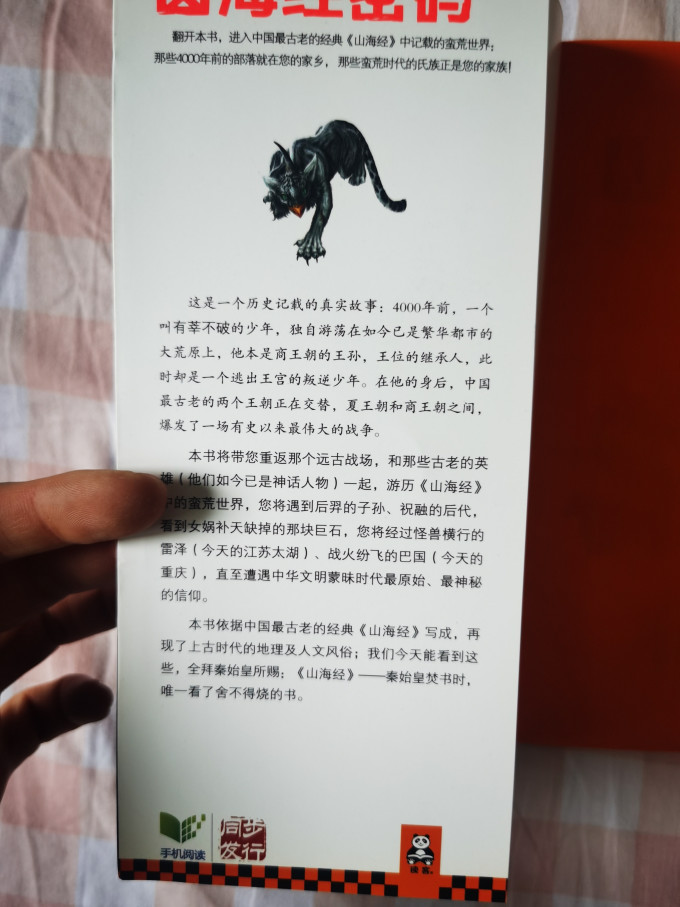 山海经密码
翻开本书，进入中国最古老的经典《山海经》中记载的蛮荒世界：
那些4000年前的部落就在您的家乡，那些蛮荒时代的氏族正是您的家族！
这是一个历史记载的真实故事：4000年前，一个
叫有莘不破的少年，独自游荡在如今已是繁华都市的
大荒原上，他本是商王朝的王孙，王位的继承人，此
时却是一个逃出王宫的叛逆少年。在他的身后，中国
最古老的两个王朝正在交替，夏王朝和商王朝之间，
爆发了一场有史以来最伟大的战争。
本书将带您重返那个远古战场，和那些古老的英
雄（他们如今已是神话人物）一起，游历《山海经》
中的蛮荒世界，您将遇到后羿的子孙、祝融的后代，
看到女娲补天缺掉的那块巨石，您将经过怪兽横行的
雷泽（今天的江苏太湖）、战火纷飞的巴国（今天的
重庆），直至遭遇中华文明蒙昧时代最原始、最神秘
的信仰。
本书依据中国最古老的经典《山海经》写成，再
现了上古时代的地理及人文风俗；我们今天能看到这
些，全拜秦始皇所赐：《山海经》——秦始皇焚书时，
唯一看了舍不得烧的书。
手机阅读
同步
发行
读客